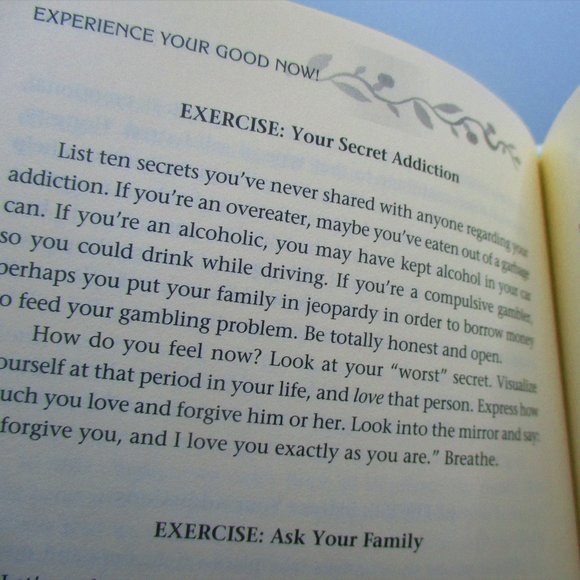 EXPERIENCE YOUR GOOD NOW!
EXERCISE: Your Secret Addiction
List ten secrets you've never shared with anyone regarding your
addiction. If you're an overeater, maybe you've eaten out of a garbage
can. If you're an alcoholic, you may have kept alcohol in your car
so you could drink while driving. If you're a compulsive gambler,
perhaps you put your family in jeopardy in order to borrow money
o feed your gambling problem. Be totally honest and open.
How do you feel now? Look at your "worst" secret. Visualize
ourself at that period in your life, and love that person. Express how
uch you love and forgive him or her. Look into the mirror and say:
forgive you, and I love you exactly as you are." Breathe.
EXERCISE: Ask Your Family